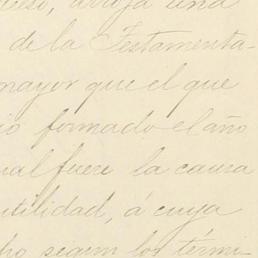 arroja una
de la Testamenta-
mayor que el que
formado el año
fuere la causa
utilidad, á cuya
segun los térmi-